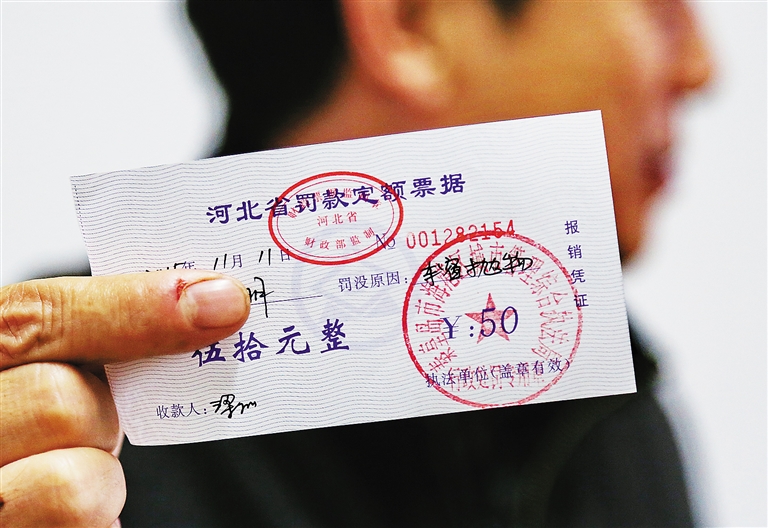 河北省罚款定额票据
河北省
财政部监制
No 001282154
年 11 月 11 日
罚没原因：车窗抛物
伍拾元整
¥:50
执法单位（盖章有效）
收款人：
报销凭证